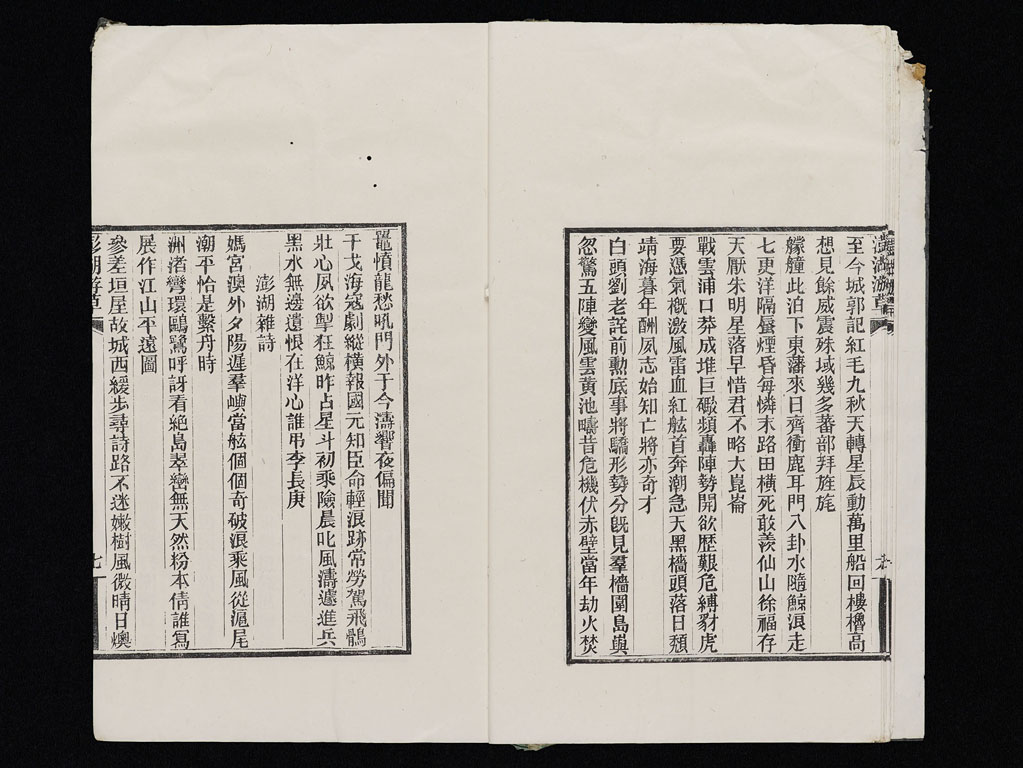 澎湖游草
至今城郭記紅毛九秋天轉星辰動萬里船回樓櫓高
想見餘威震殊域幾多蕃部拜旌旄
艨艟此泊下東藩來日齊衝鹿耳門八卦水隨鯨浪走
七更洋隔蜃煙昏每憐末路田橫死敢羨仙山徐福存
天厭朱明星落早惜君不略大崑崙
戰雲浦口莽成堆巨礮頻轟陣勢開欲歷艱危縛豺虎
要憑氣概激風雷血紅舷首奔潮急天黑檣頭落日頹
靖海暮年酬夙志始知亡將亦奇才
白頭劉老詫前勳底事將驕形勢分既見羣檣圍島嶼
忽驚五陣變風雲黃池疇昔危機伏赤壁當年劫火焚
鼉憤龍愁吼門外于今濤響夜偏聞
干戈海寇劇縱橫報國元知臣命輕浪跡常勞駕飛鶻
壯心夙欲掣狂鯨昨占星斗初乘險晨叱風濤遽進兵
黑水無邊遺恨在洋心誰弔李長庚
澎湖雜詩
媽宮澳外夕陽遲羣嶼當舷個個奇破浪乘風從滬尾
潮平恰是繫舟時
洲渚彎環鷗鷺呼訝看絕島翠巒無天然粉本倩誰寫
展作江山平遠圖
參差垣屋故城西緩步尋詩路不迷嫩樹風微晴日燠
澎湖游草
七